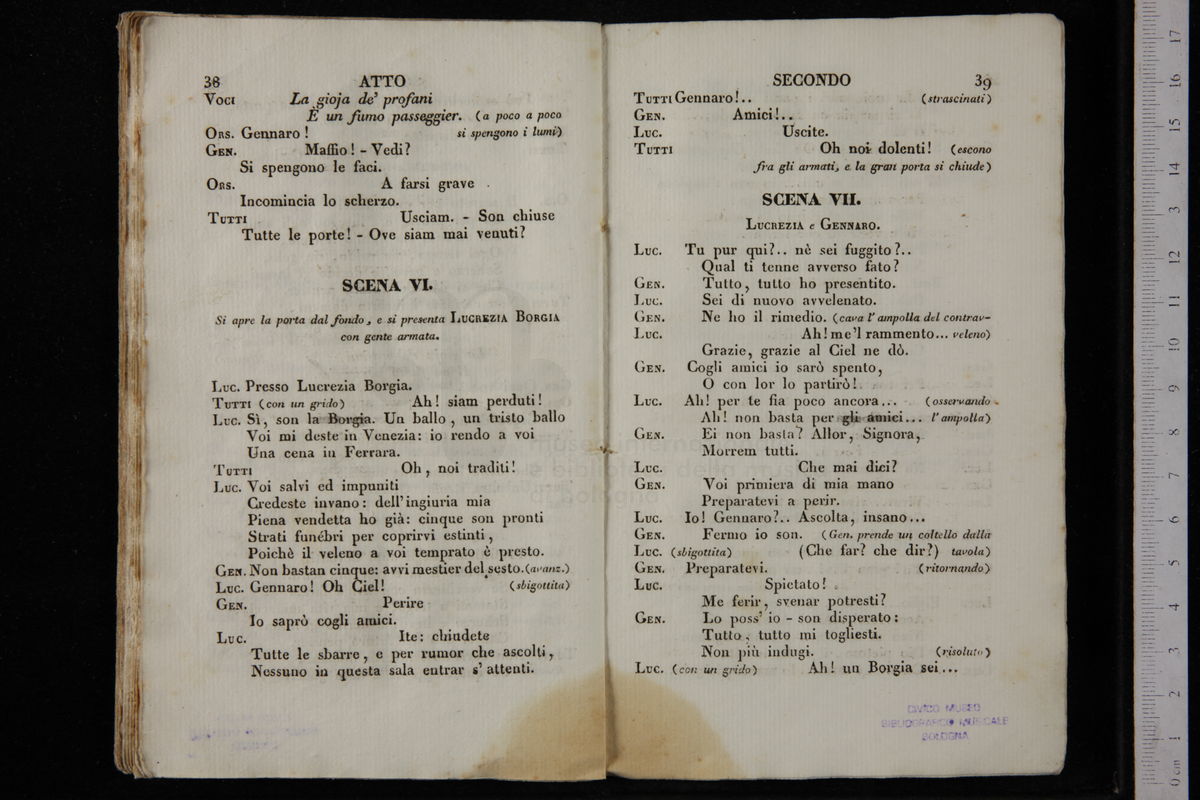 38 ATTO
VOCI La gioja de' profani
È un fumo passeggier. (a poco a poco
ORS. Gennaro! si spengono i lumi)
GEN. Maffio! - Vedi?
Si spengono le faci.
ORS. A farsi grave
Incomincia lo scherzo.
TUTTI Usciam. - Son chiuse
Tutte le porte! - Ove siam mai venuti?
SCENA VI.
Si apre la porta dal fondo, e si presenta LUCREZIA BORGIA
con gente armata.
LUC. Presso Lucrezia Borgia.
TUTTI (con un grido) Ah! siam perduti!
LUC. Sì, son la Borgia. Un ballo, un tristo ballo
Voi mi deste in Venezia: io rendo a voi
Una cena in Ferrara.
TUTTI Oh, noi traditi!
LUC. Voi salvi ed impuniti
Credeste invano: dell'ingiuria mia
Piena vendetta ho già: cinque son pronti
Strati funébri per coprirvi estinti,
Poichè il veleno a voi temprato è presto.
GEN. Non bastan cinque: avvi mestier del sesto. (avanz.)
LUC. Gennaro! Oh Ciel! (sbigottita)
GEN. Perire
Io saprò cogli amici.
LUC. Ite: chiudete
Tutte le sbarre, e per rumor che ascolti,
Nessuno in questa sala entrar s' attenti.
SECONDO 39
TUTTI Gennaro!.. (strascinati)
GEN. Amici!..
LUC. Uscite.
TUTTI Oh noi dolenti! (escono
fra gli armati, e la gran porta si chiude)
SCENA VII.
LUCREZIA e GENNARO.
LUC. Tu pur qui?.. nè sei fuggito?..
Qual ti tenne avverso fato?
GEN. Tutto, tutto ho presentito.
LUC. Sei di nuovo avvelenato.
GEN. Ne ho il rimedio. (cava l'ampolla del contrav-
LUC. Ah! me'l rammento... veleno)
Grazie, grazie al Ciel ne dò.
GEN. Cogli amici io sarò spento,
O con lor lo partirò!
LUC. Ah! per te fia poco ancora... (osservando
Ah! non basta per gli amici... l'ampolla)
GEN. Ei non basta? Allor, Signora,
Morrem tutti.
LUC. Che mai dici?
GEN. Voi primiera di mia mano
Preparatevi a perir.
LUC. Io! Gennaro?.. Ascolta, insano...
GEN. Fermo io son. (Gen. prende un coltello dalla
LUC. (sbigottita) (Che far? che dir?) tavola)
GEN. Preparatevi. (ritornando)
LUC. Spietato!
Me ferir, svenar potresti?
GEN. Lo poss' io - son disperato:
Tutto, tutto mi togliesti.
Non più indugi. (risoluto)
LUC. (con un grido) Ah! un Borgia sei...
CIVICO MUSEO
BIBLIOGRAFICO MUSICALE
BOLOGNA